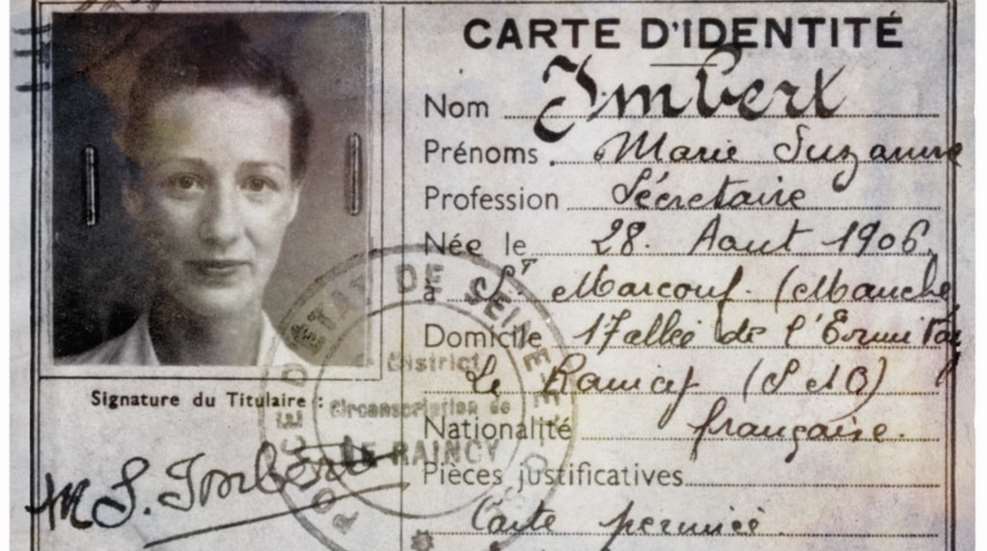 CARTE D'IDENTITÉ
Nom Imbert
Prénoms. Marie Suzanne
Profession Sécretaire
Née le 28. Aout 1906.
à St Marcouf. (Manche)
Domicile 17 allée de l'Ermitage
Le Raincy (S et O)
Nationalité française.
Pièces justificatives
Carte
Signature du Titulaire :
M S. Imbert
DE SEINE ET O
District
Circonscription de
LE RAINCY